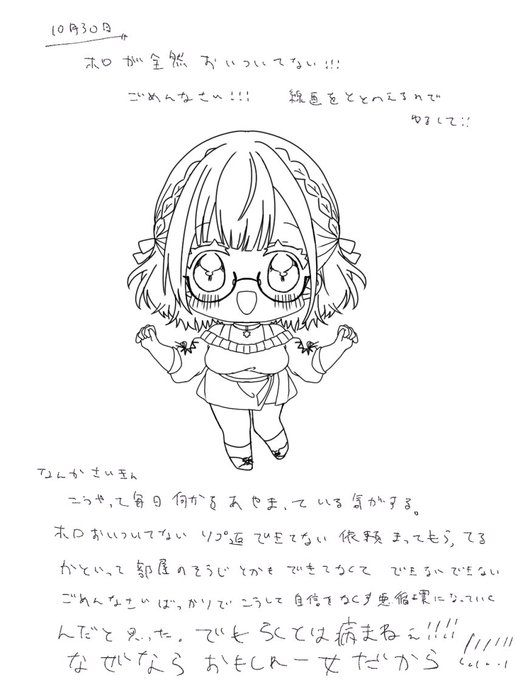 10月30日
ホロが全然おいついてない!!!
ごめんなさい!!! 線画をととのえるので
ゆるして!!
なんかさいきん
こうやって毎日何かをあやまっている気がする。
ホロおいついてない リプ返できてない 依頼まってもらってる
かといって部屋のそうじとかもできてなくて できないできない
ごめんなさいばっかりでこうして自信をなくす悪循環になっていく
んだと思った。でもらくとは病まねぇ!!!!
なぜなら おもしれー女だから!!!!!